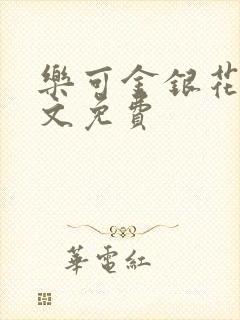 樂可金銀花
文免費
華電紅